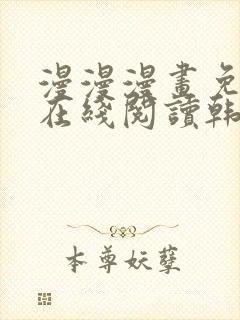 漫漫漫畫免
在綫閱讀韩
本尊妖孽